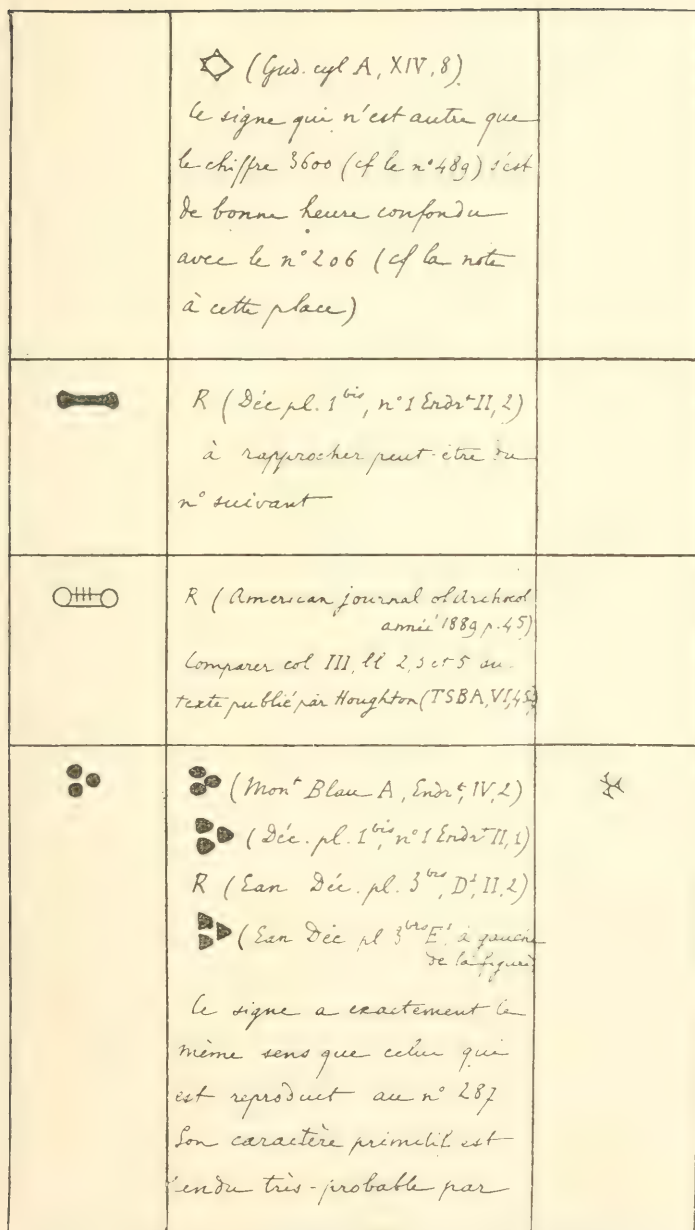 (Gud. cyl A, XIV, 8)
Ce signe qui n'est autre que
le chiffre 3600 (cf le n° 489) s'est
de bonne heure confondu
avec le n° 206 (cf la note
à cette place)
R (Déc pl. 1 bis, n° 1 Endrt II, 2)
à rapprocher peut-être du
n° suivant
R (American journal of Archæol
année 1889 p. 45)
Comparer col III, ll 2, 3 et 5 au
texte publié par Houghton (TSBA, VI, 45
(Mont Blau A, Endrt, IV, 2)
(Déc. pl. 1 bis, n° 1 Endrt II, 1)
R (Ean Déc. pl. 3 bis, D¹, II, 2)
(Ean Déc pl 3 bis E¹, à gauche
de la figure)
Ce signe a exactement le
même sens que celui qui
est reproduit au n° 287
Son caractère primitif est
rendu très-probable par